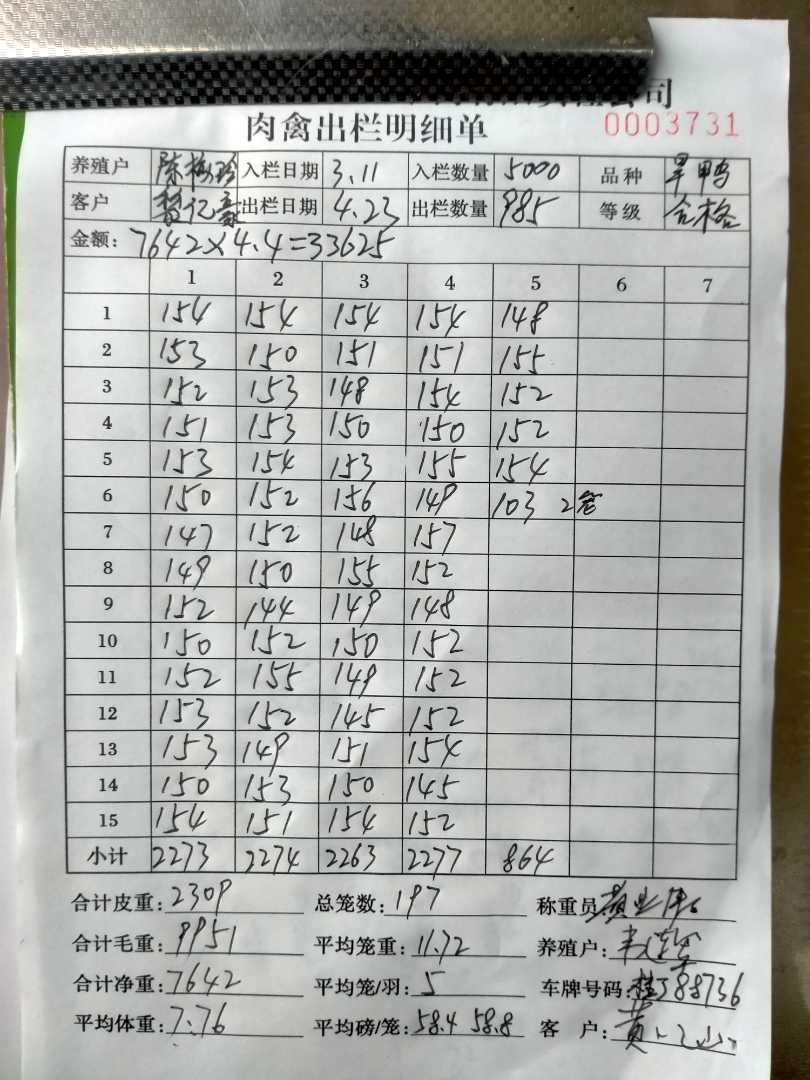 公司
肉禽出栏明细单 0003731
养殖户 陈梅珍 入栏日期 3.11 入栏数量 5000 品种 旱鸭
客户 出栏日期 4.23 出栏数量 985 等级 合格
金额: 7642×4.4=33625
1 2 3 4 5 6 7
1 154 154 154 154 148
2 153 150 151 151 155
3 152 153 148 154 152
4 151 153 150 150 152
5 153 154 153 155 154
6 150 152 156 149 103 2笼
7 147 152 148 157
8 149 150 155 152
9 152 144 149 148
10 150 152 150 152
11 152 155 149 152
12 153 152 145 152
13 153 149 151 154
14 150 153 150 145
15 154 151 154 152
小计 2273 2274 2263 2277 864
合计皮重: 2309 总笼数: 197 称重员
合计毛重: 9951 平均笼重: 11.72 养殖户:
合计净重: 7642 平均笼/羽: 5 车牌号码: 桂J88736
平均体重: 7.76 平均磅/笼: 58.4 58.8 客 户: 黄